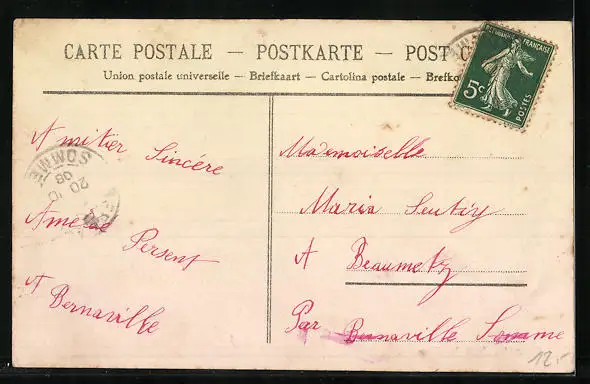 CARTE POSTALE — POSTKARTE — POST C
Union postale universelle — Briefkaart — Cartolina postale — Brefko
REPUBLIQUE FRANÇAISE
5c
POSTES
SOMME
20
08
Amitier Sincére
Amelie Persent
A Bernaville
Mademoiselle
Maria
A Beaumetz
Par Bernaville Somme
12.-